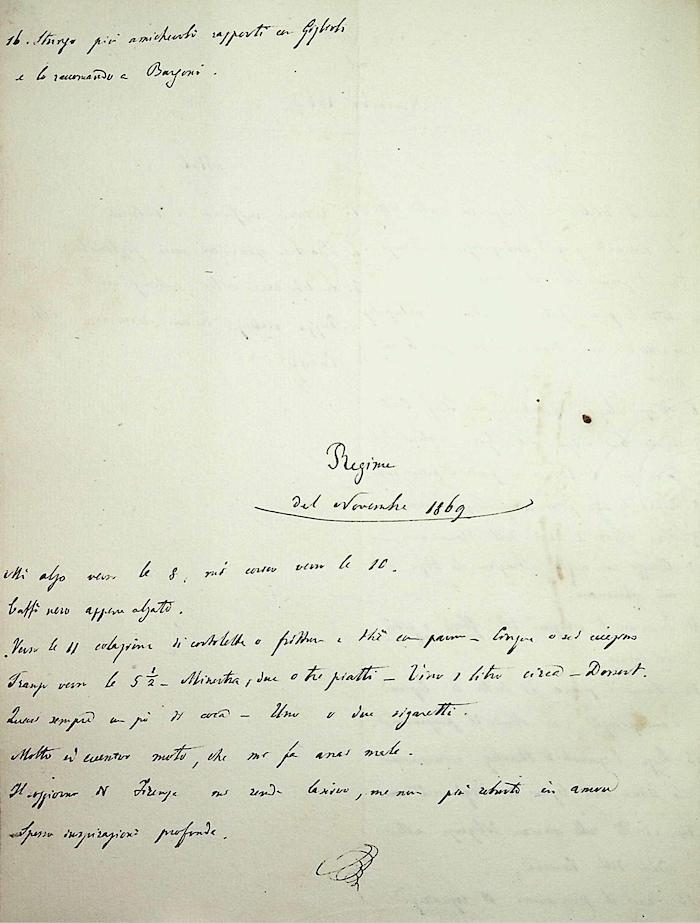 16. Stringo più amichevoli rapporti con Giglioli
e lo raccomando a Bargoni.
Regime
del Novembre 1869
Mi alzo verso le 8, mi corico verso le 10.
Caffè nero appena alzato.
Verso le 11 colazione di costoletta o frittura e thè con pane –
Pranzo verso le 5 ½ – Minestra, due o tre piatti – Vino 1 litro circa – Dessert.
Quasi sempre un pò di coca – Uno o due sigaretti.
Molto moto, che mi fa assai male.
Il soggiorno di Firenze mi rende lascivo, ma non più robusto in amore
Spesso inspirazioni profonde.